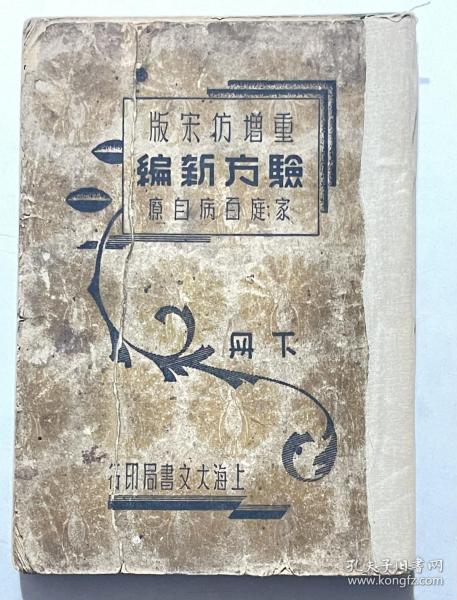 重增仿宋版
驗方新編
家庭百病自療
下冊
上海大文書局印行
孔夫子旧书网
www.kongfz.com